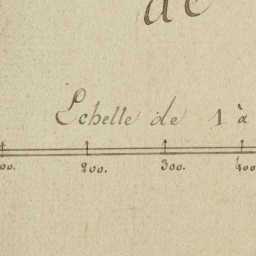 de
Echelle de 1 à
00. 200. 300. 400